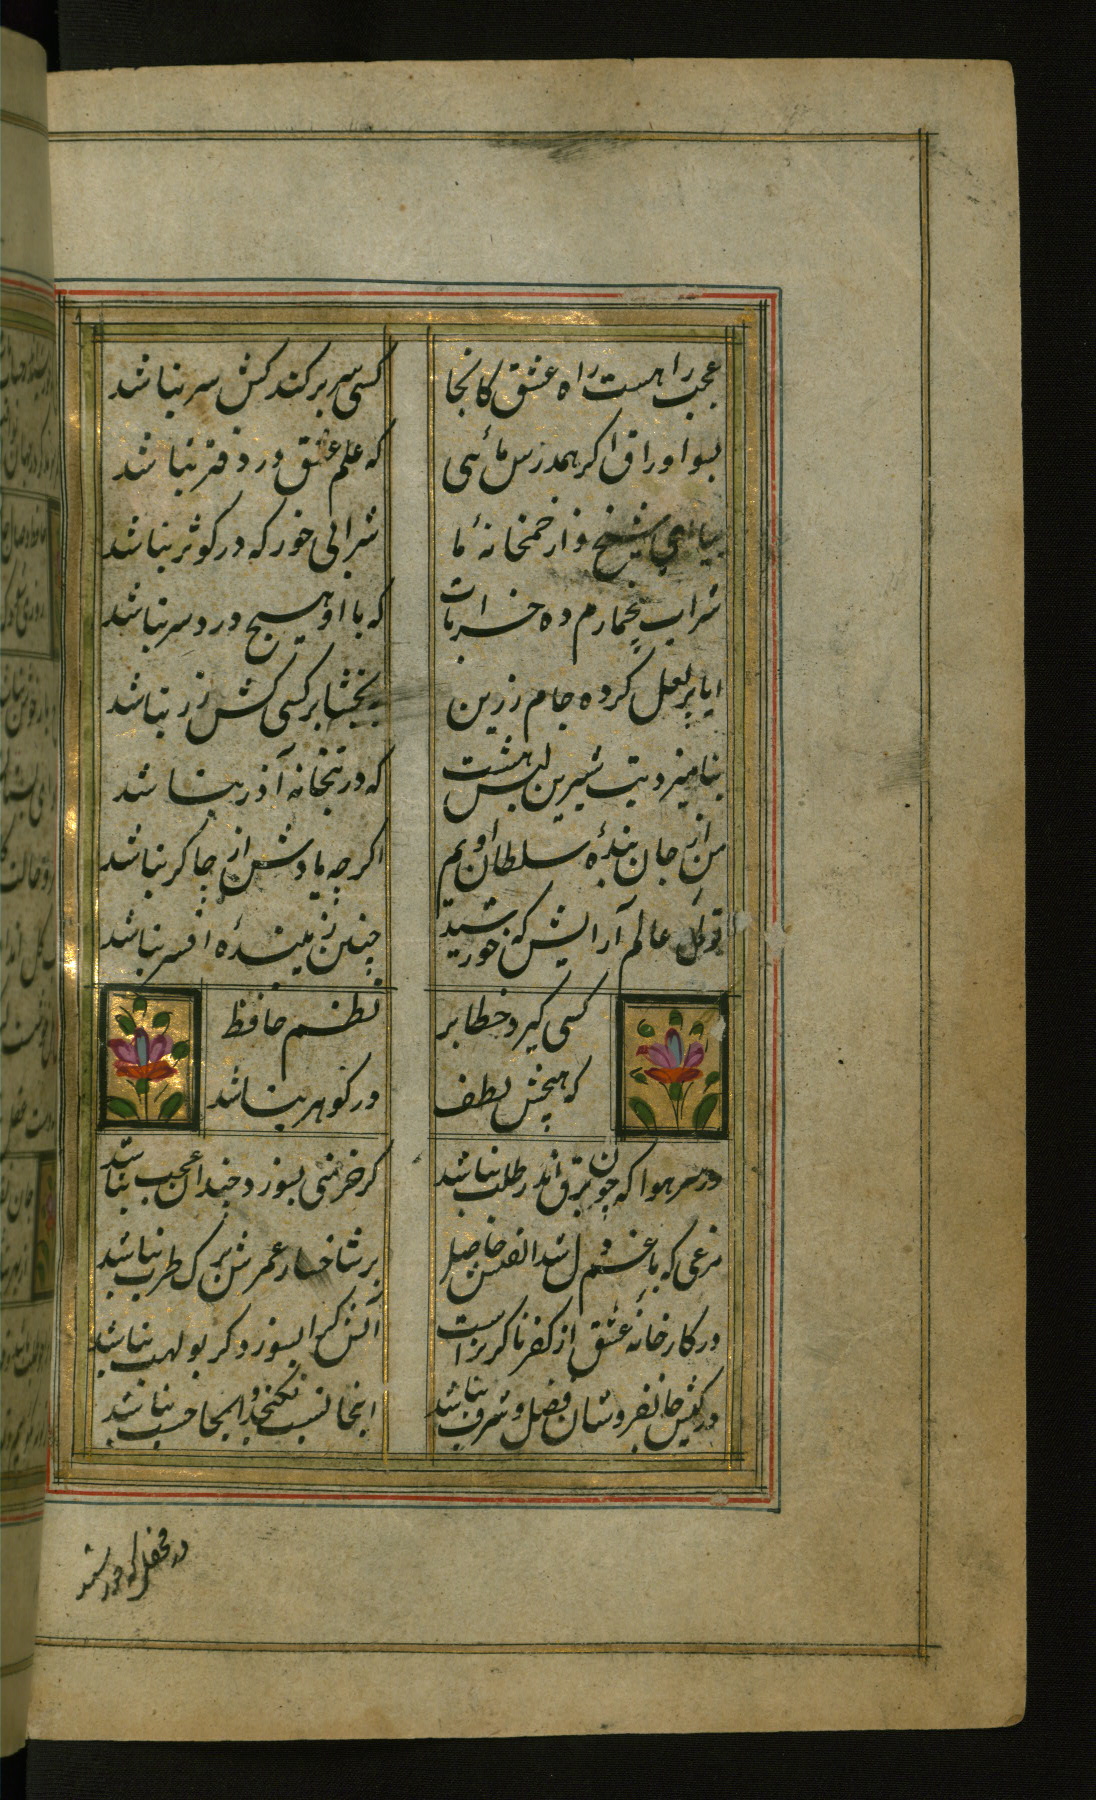 عجب راهیست راه عشق کانجا
کسی سر بر کند کش سر نباشد
بشو اوراق اگر همدرس مائی
که علم عشق در دفتر نباشد
بیا ای شیخ و از خمخانهٔ ما
شرابی خور که در کوثر نباشد
شراب بی خمارم ده خرابات
که با او هیچ درد سر نباشد
ایا پر لعل کرده جام زرین
ببخشا بر کسی کش زر نباشد
بنامیزد بت شیرین لبم هست
که در بتخانه آذر نباشد
من از جان بندهٔ سلطان اویم
اگرچه یادش از چاکر نباشد
عالم آرایش که خورشید
چنین زیبندهٔ افسر نباشد
کسی گیرد خطا بر
نظم حافظ
که هیچش لطف
در گوهر نباشد
در هر هوا که چون برق اندر طلب نباشد
گر خرمنی بسوزد چندان عجب نباشد
مرغی که با غم دل شد الفتیش حاصل
بر شاخسار عمرش برگ طرب نباشد
در کارخانهٔ عشق از کفر ناگزیر است
آتش کرا بسوزد گر بولهب نباشد
در کیش جانفروشان فضل و شرف نباشد
اینجا نسب نگنجد و اینجا حسب نباشد
در محفلی که خورشید